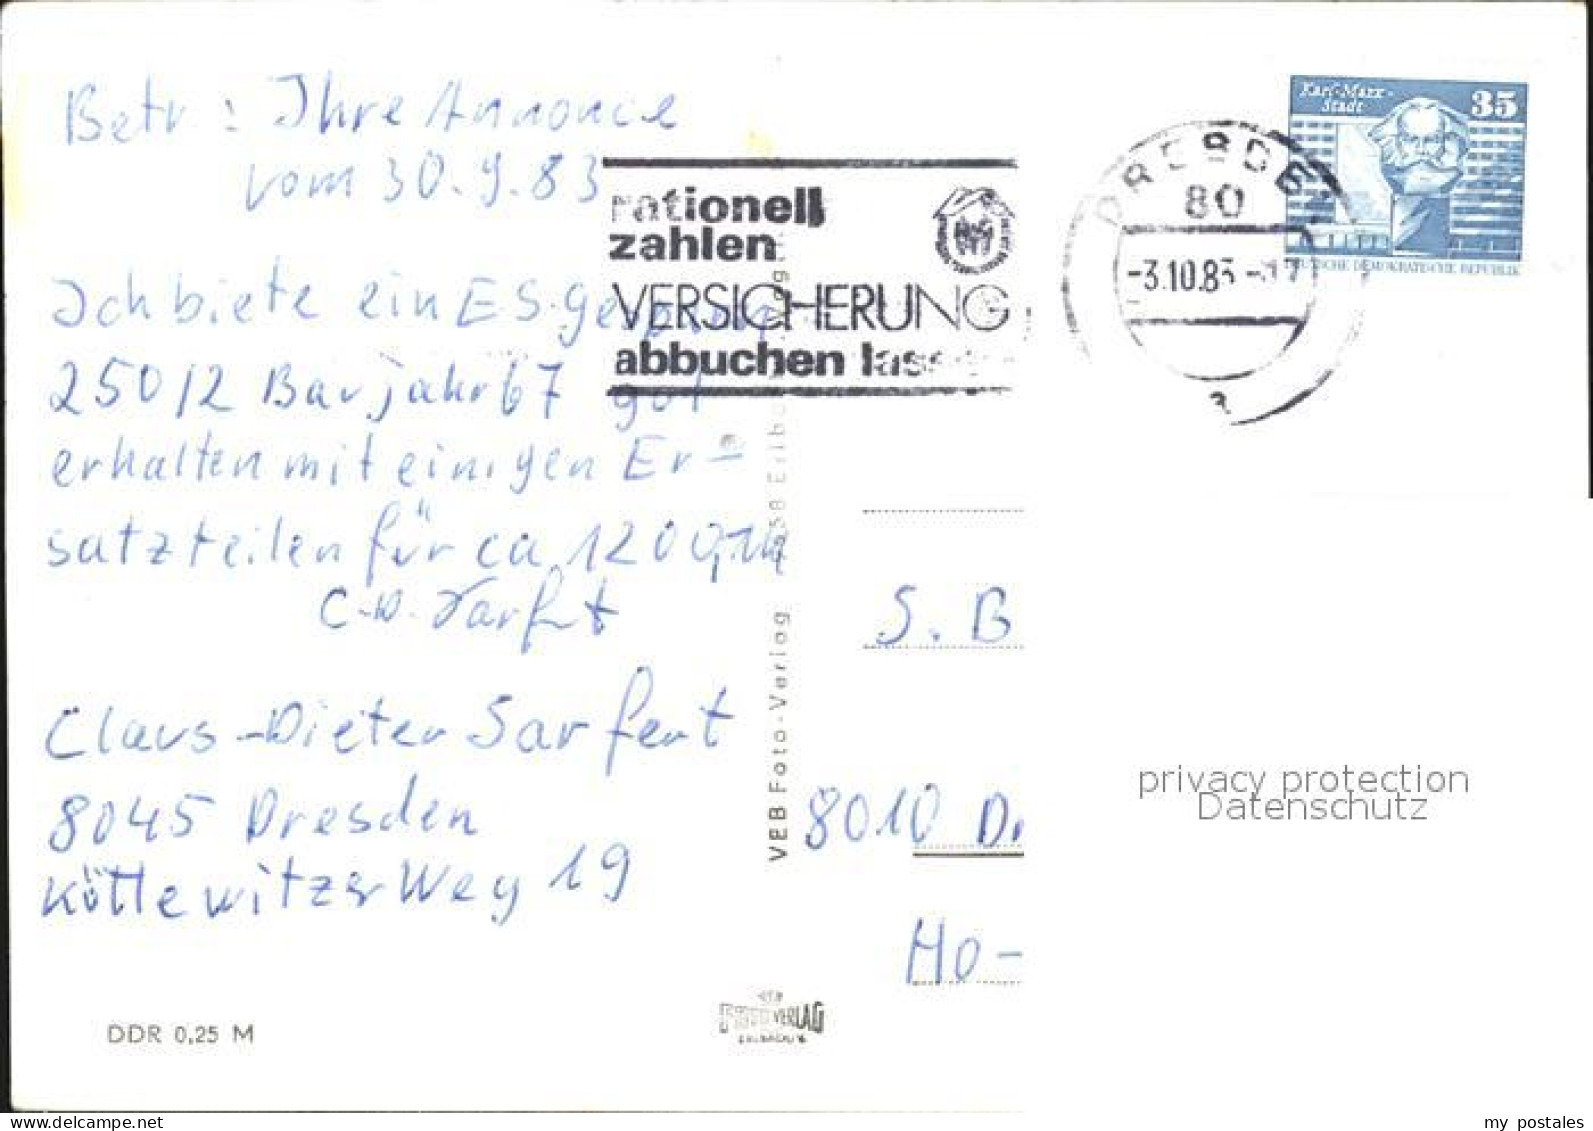 Betr.: Ihre Annonce
vom 30.9.83
Ich biete ein ES.Gespann
250/2 Baujahr 67 gut
erhalten mit einigen Er-
satzteilen für ca 1200,M
C-D. Sarfert
Claus-Dieter Sarfert
8045 Dresden
Köttewitzer Weg 19
DDR 0,25 M
rationell
zahlen
VERSICHERUNG
abbuchen lassen
DRESDEN
80
-3.10.83
a
Karl-Marx-
Stadt
35
DEUTSCHE DEMOKRATISCHE REPUBLIK
VEB Foto-Verlag
S. B
8010 D
Ho-
FOTO VERLAG
privacy protection
Datenschutz
my postales